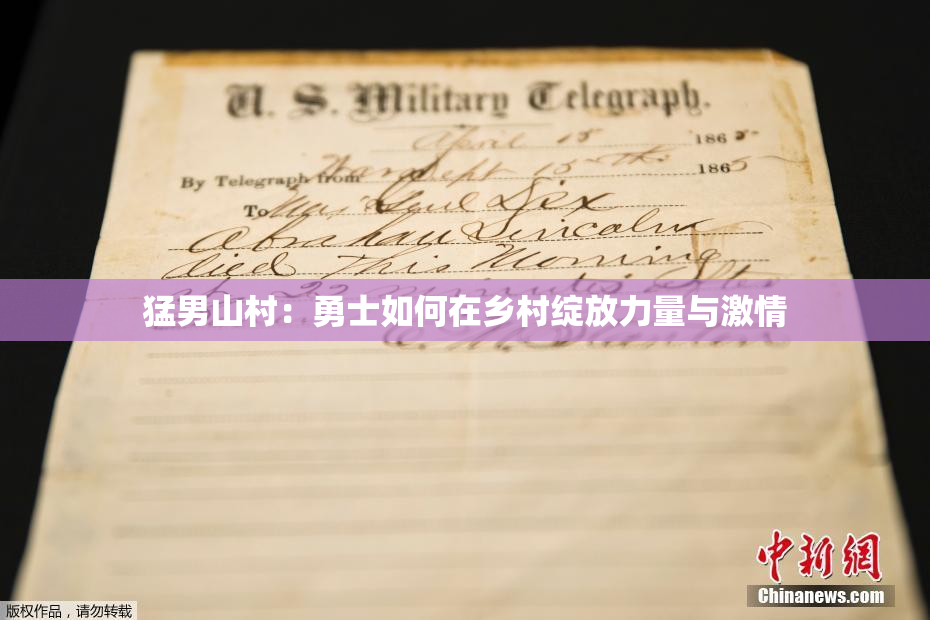 U. S. Military Telegraph.
April 15 1865
By Telegraph from War Dept 15th 1865
To Maj Genl Dix
Abraham Lincoln
died This Morning
at 22 minutes after
猛男山村：勇士如何在乡村绽放力量与激情
E. M. Stanton
中新網
Chinanews.com
版权作品，请勿转载